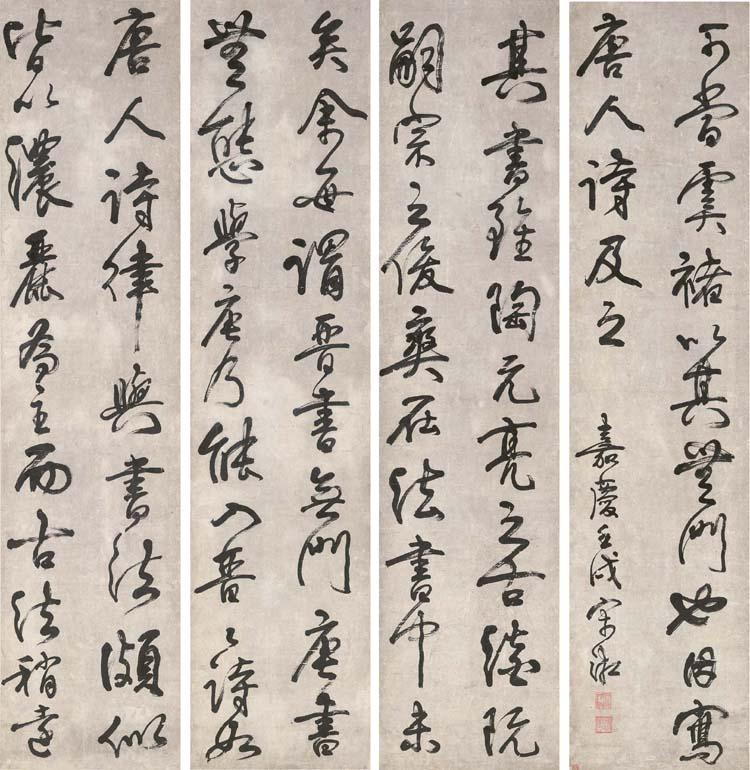 唐人詩律與書法頗似
皆以濃麗為主而古法稍遠
矣余每謂晉書無門唐書
無態學唐乃能入晉〻詩如
其書雖陶元亮之古澹阮
嗣宗之俊爽在法書中未
可當虞褚以其無門也因寫
唐人詩及之
嘉慶壬戌宋湘